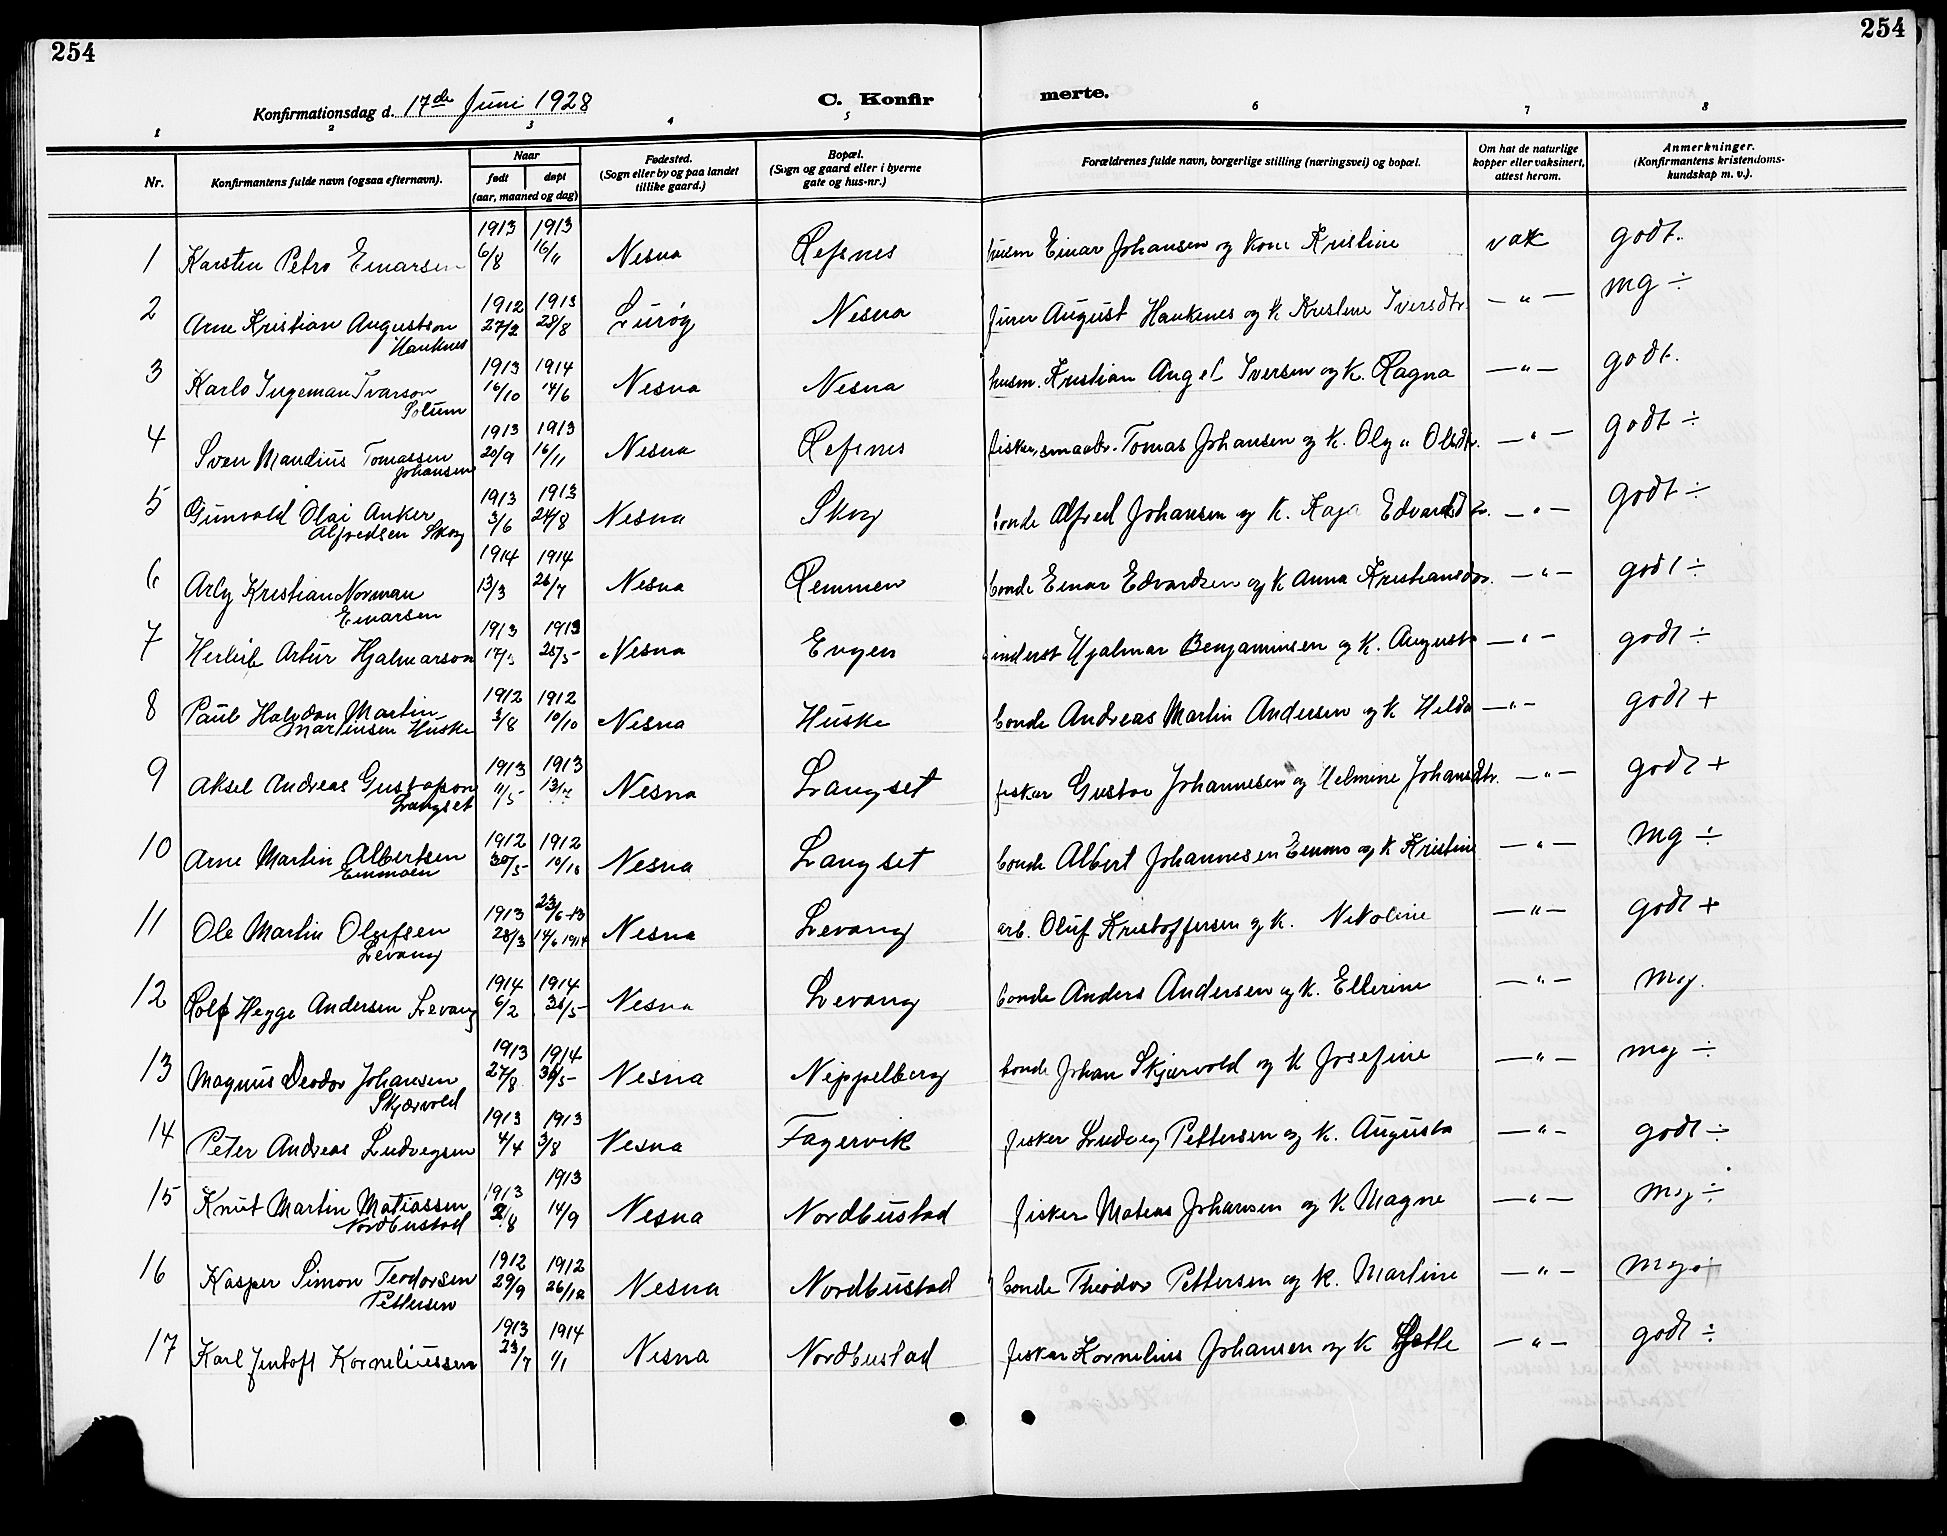 254
254
Konfirmationsdag d. 17de Juni 1928
C. Konfir
merte.
1 2 3 4 5 6 7 8
Nr.
Konfirmantens fulde navn (ogsaa efternavn).
Naar
født døpt
(aar, maaned og dag)
Fødested.
(Sogn eller by og paa landet
tillike gaard.)
Bopæl.
(Sogn og gaard eller i byerne
gate og hus-nr.)
Forældrenes fulde navn, borgerlige stilling (næringsvei) og bopæl.
Om hat de naturlige
kopper eller vaksinert,
attest herom.
Anmerkninger.
(Konfirmantens kristendoms-
kundskap m. v.).
1913 1913
1 Karsten Petro Einarsen 6/8 16/11 Nesna Refsnes husm Einar Johansen og kone Kristine vak godt.
1912 1913
2 Arne Kristian Augustson 27/2 28/8 Lurøy Nesna August Hauknes og k Kristine Iversdtr — " — mg ÷
Hauknes
1913 1914
3 Karlo Ingeman Ivarson 16/10 14/6 Nesna Nesna husm. Kristian Angel Iversen og k. Ragna — " — godt.
Solum
1913 1913
4 Sven Mandius Tomassen 20/9 16/11 Nesna Refsnes fisker, smaabr. Tomas Johansen og k. Olga Olsdtr. — " — godt ÷
Johansen
1913 1913
5 Gunvald Olai Anker 3/6 24/8 Nesna Skog bonde Alfred Johansen og k. Kaja Edvardsdtr. — " — godt ÷
Alfredsen Skog
1914 1914
6 Arly Kristian Norman 13/3 26/7 Nesna Remmen bonde Einar Edvardsen og k Anna Kristiansdtr. — " — godt ÷
Einarsen
1913 1913
7 Herleib Artur Hjalmarson 25/5 Nesna Engen inderst Hjalmar Benjaminsen og k. Augusta — " — godt ÷
1912 1912
8 Paul Halvdan Martin 3/8 10/10 Nesna Huske bonde Andreas Martin Andersen og k Helda — " — godt +
Martinsen Huske
1913 1913
9 Aksel Andreas Gustafson 11/5 13/7 Nesna Langset fisker Gustav Johannesen og Helmine Johansdtr. — " — godt +
Langset
1912 1912
10 Arne Martin Albertsen 30/5 10/10 Nesna Langset bonde Albert Johannesen Emmo og k Kristine — " — mg ÷
Emmoen
1913 23/6-13
11 Ole Martin Olufsen 28/3 14/6 1914 Nesna Levang arb. Oluf Kristoffersen og k. Nikoline — " — godt +
Levang
1914 1914
12 Rolf Hegge Andersen Levang 6/2 31/5 Nesna Levang bonde Anders Andersen og k. Ellerine — " — mg.
1913 1914
13 Magnus Deodor Johansen 27/8 31/5 Nesna Nippelberg bonde Johan Skjærvold og k Josefine — " — mg ÷
Skjærvold
1913 1913
14 Peter Andreas Ludvigsen 4/4 3/8 Nesna Fagervik fisker Ludvig Pettersen og k. Augusta — " — godt ÷
1913 1913
15 Knut Martin Matiassen 2/8 14/9 Nesna Nordbustad fisker Matias Johansen og k Magne — " — mg ÷
Nordbustad
1912 1912
16 Kasper Simon Teodorsen 29/9 26/12 Nesna Nordbustad bonde Theodor Pettersen og k. Martine — " — mg +
Pettersen
1913 1914
17 Karl Jentoft Korneliussen 23/7 1/1 Nesna Nordbustad fisker Kornelius Johansen og k — " — godt ÷